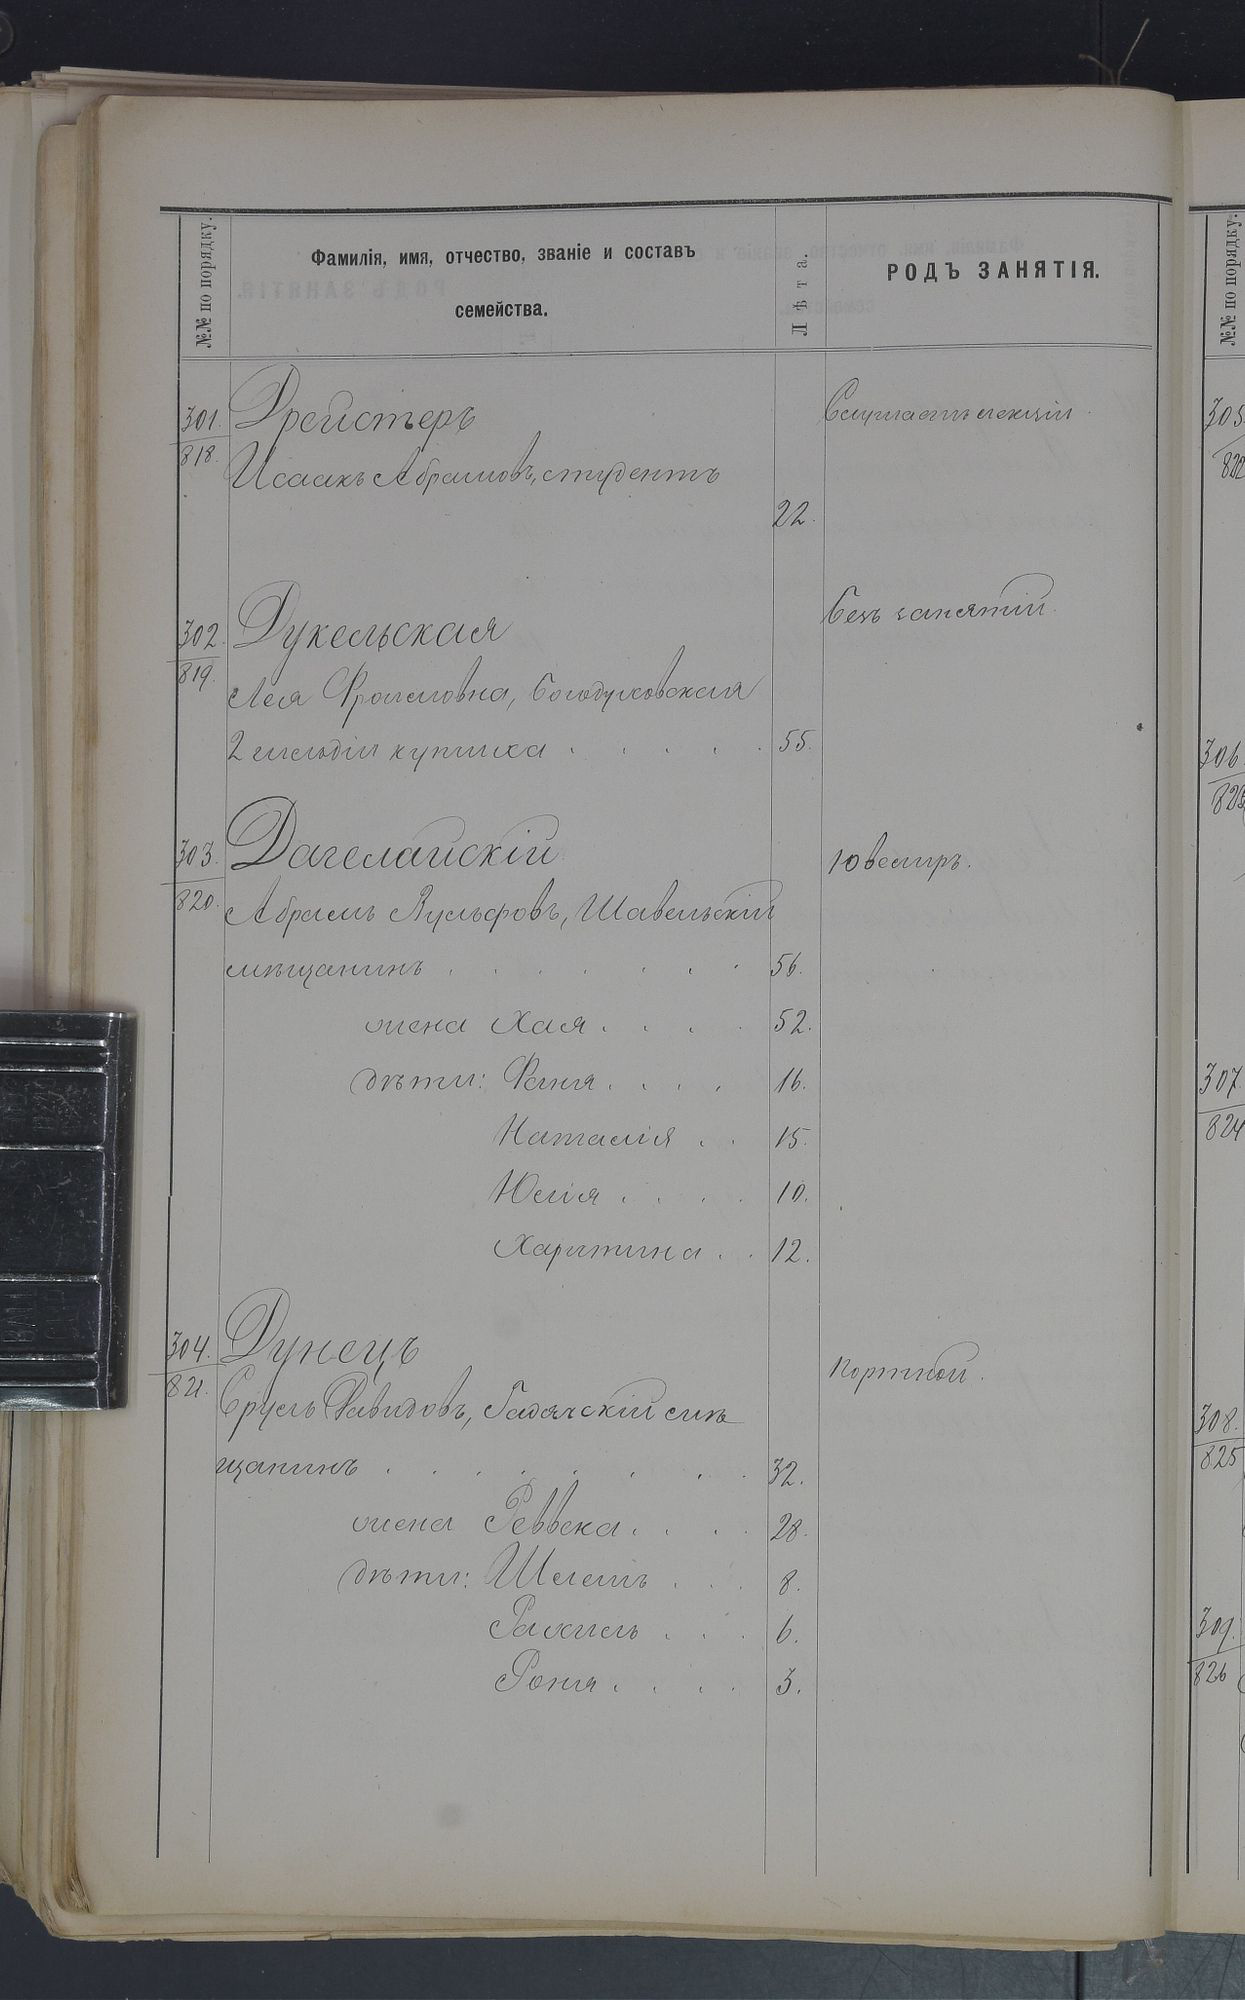 №№ по порядку.
Фамилія, имя, отчество, званіе и составъ
семейства.
Лѣта.
РОДЪ ЗАНЯТІЯ.
301.
818.
Дрейстеръ
Слушаетъ лекціи.
Исаакъ Абрамовъ, студентъ
22.
302.
819.
Дукельская
Безъ занятій.
Лея Фроимовна, Богодуховская
2 гильдіи купчиха . . . . 55.
303.
820.
Дагелайскій
Ювелиръ.
Абрамъ Вульфовъ, Шавельскій
мѣщанинъ . . . . . . 56.
жена Хая . . . . 52.
дѣти: Фаня . . . . 16.
Наталія . . 15.
Юлія . . . . 10.
Харитина . . 12.
304.
821.
Дунецъ
Портной.
Сруль Давидовъ, Гадячскій мѣ
щанинъ . . . . . . . 32.
жена Реввека . . . . 28.
дѣти: Шлема . . . 8.
Рахиль . . . 6.
Роня . . . . 3.
№№ по порядку.
305
822
306
823
307
824
308.
825
309.
826